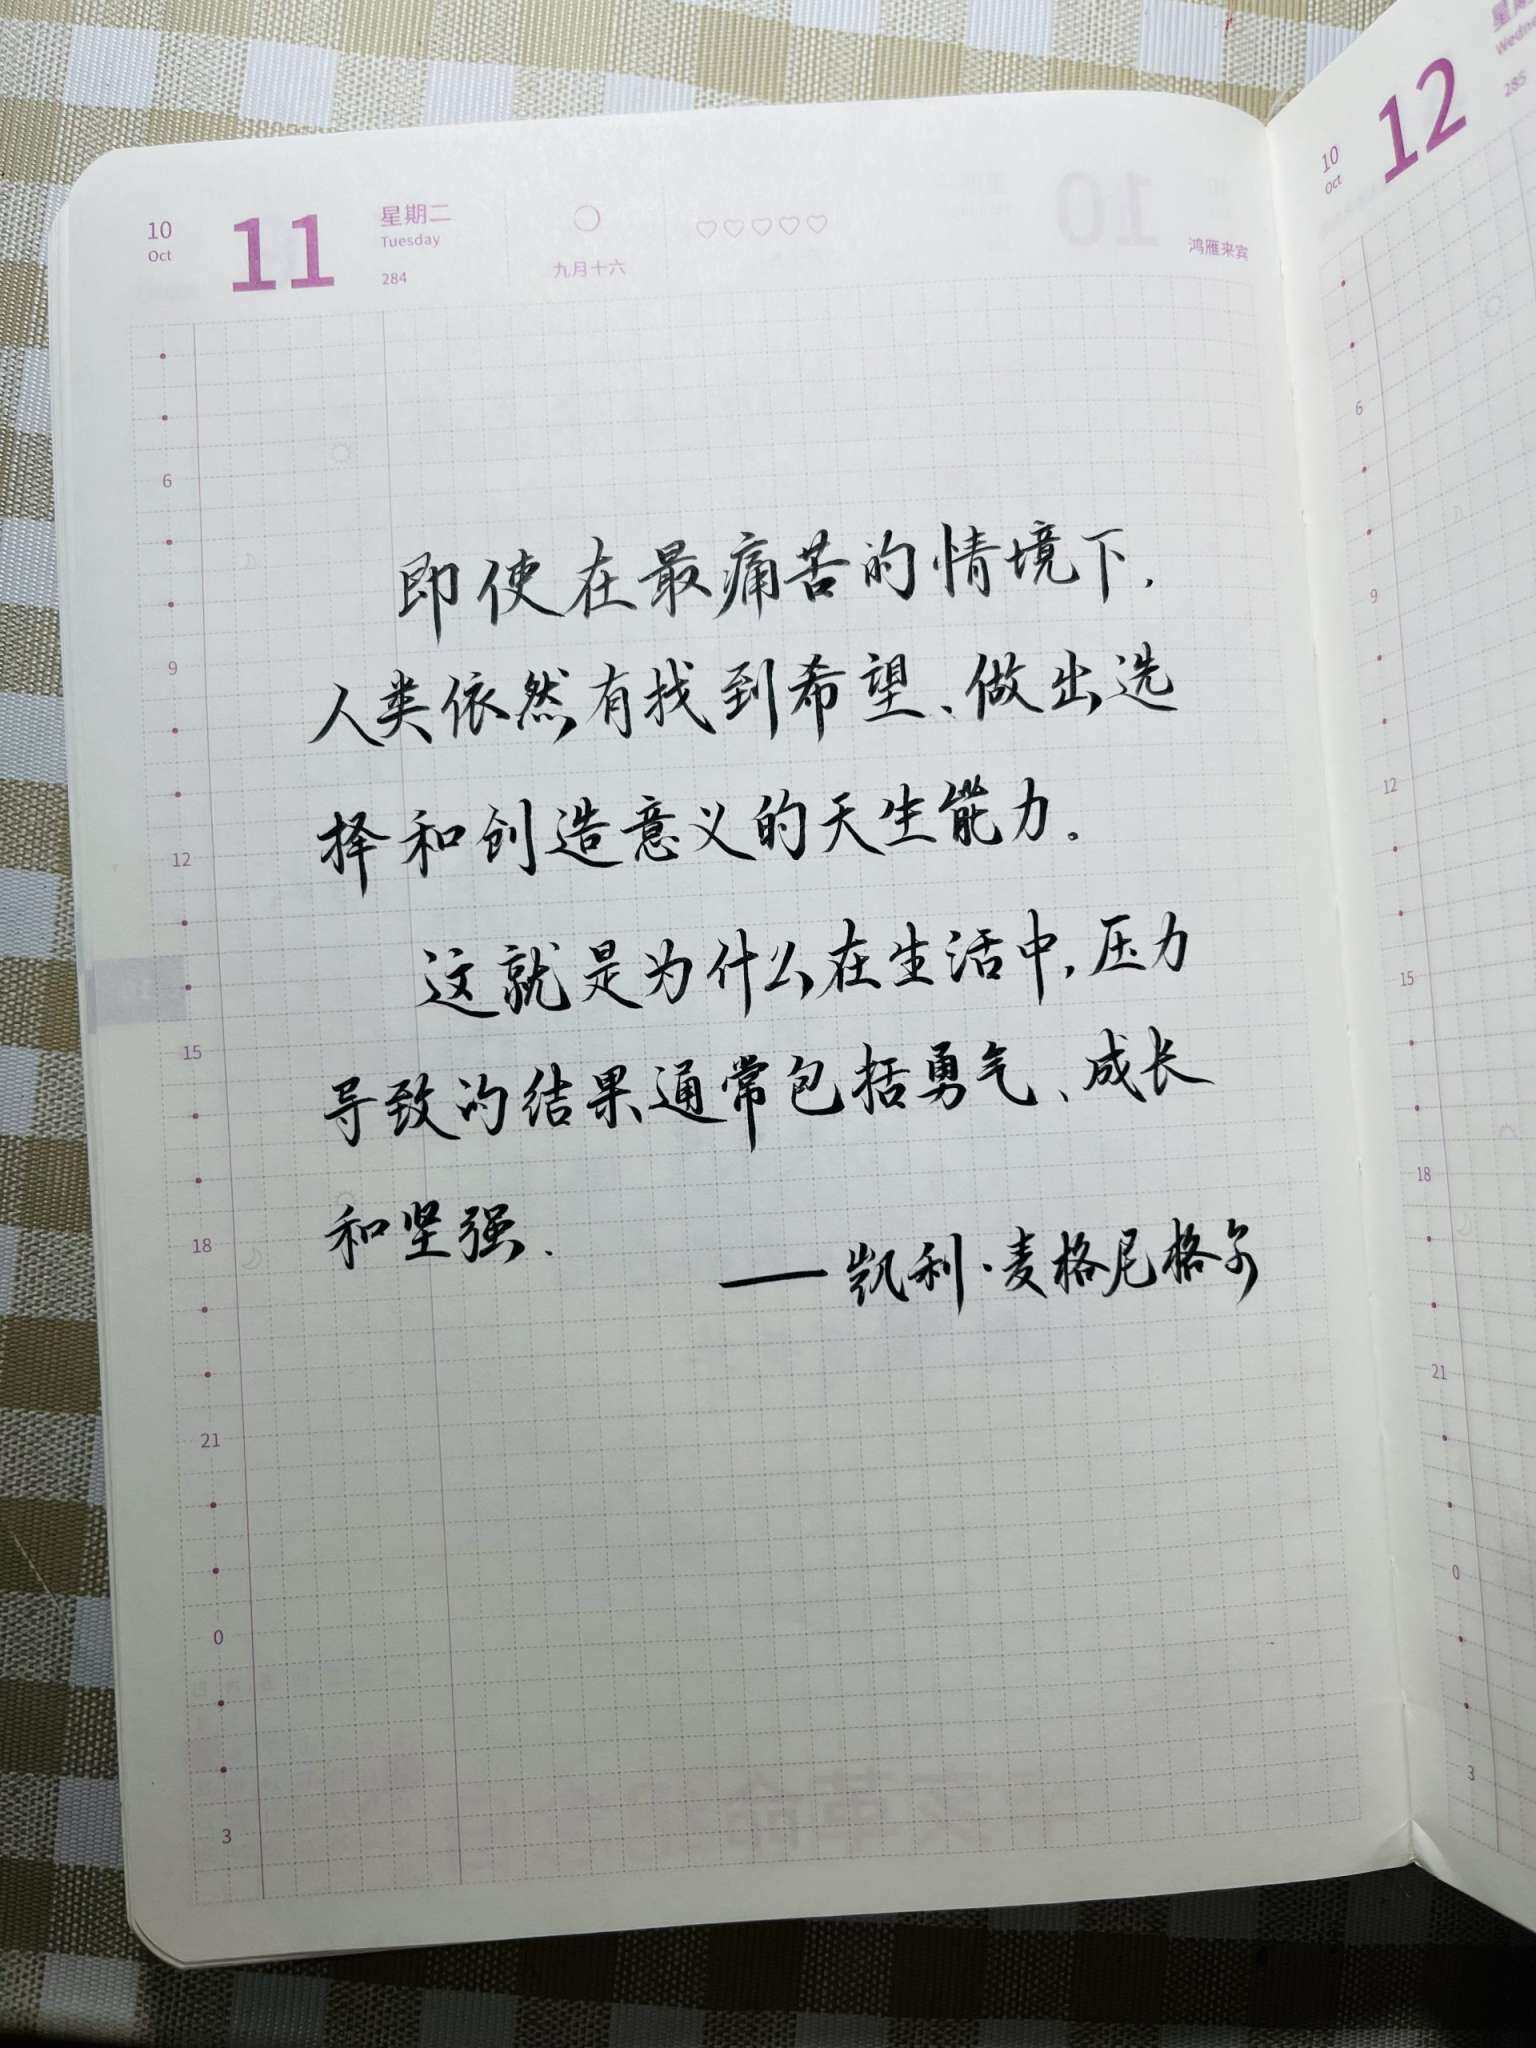 10
Oct
11
星期二
Tuesday
284
九月十六
鸿雁来宾
6
9
12
15
18
21
0
3
即使在最痛苦的情境下,
人类依然有找到希望、做出选
择和创造意义的天生能力。
这就是为什么在生活中,压力
导致的结果通常包括勇气、成长
和坚强.
——凯利·麦格尼格尔
10
Oct
12
285
6
9
12
15
18
21
0
3